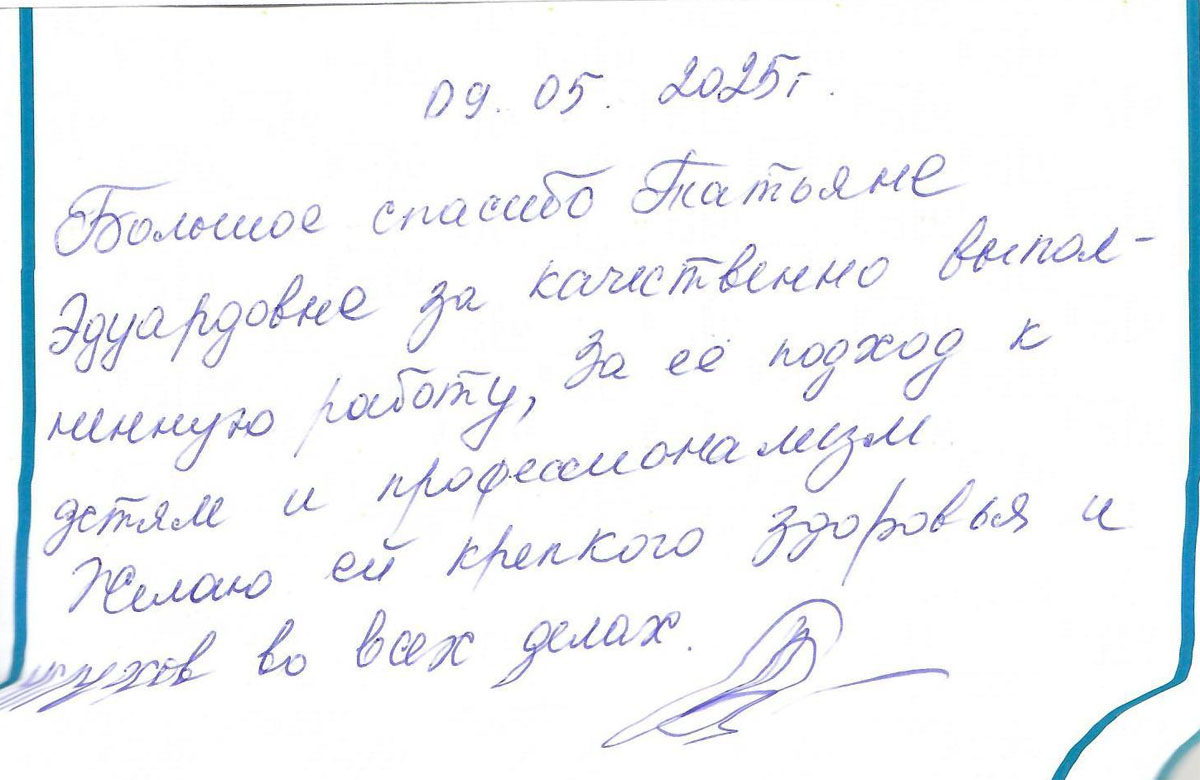 09. 05. 2025г.
Большое спасибо Татьяне
Эдуардовне за качественно выпол-
ненную работу, За её подход к
детям и профессионализм
Желаю ей крепкого здоровья и
успехов во всех делах.